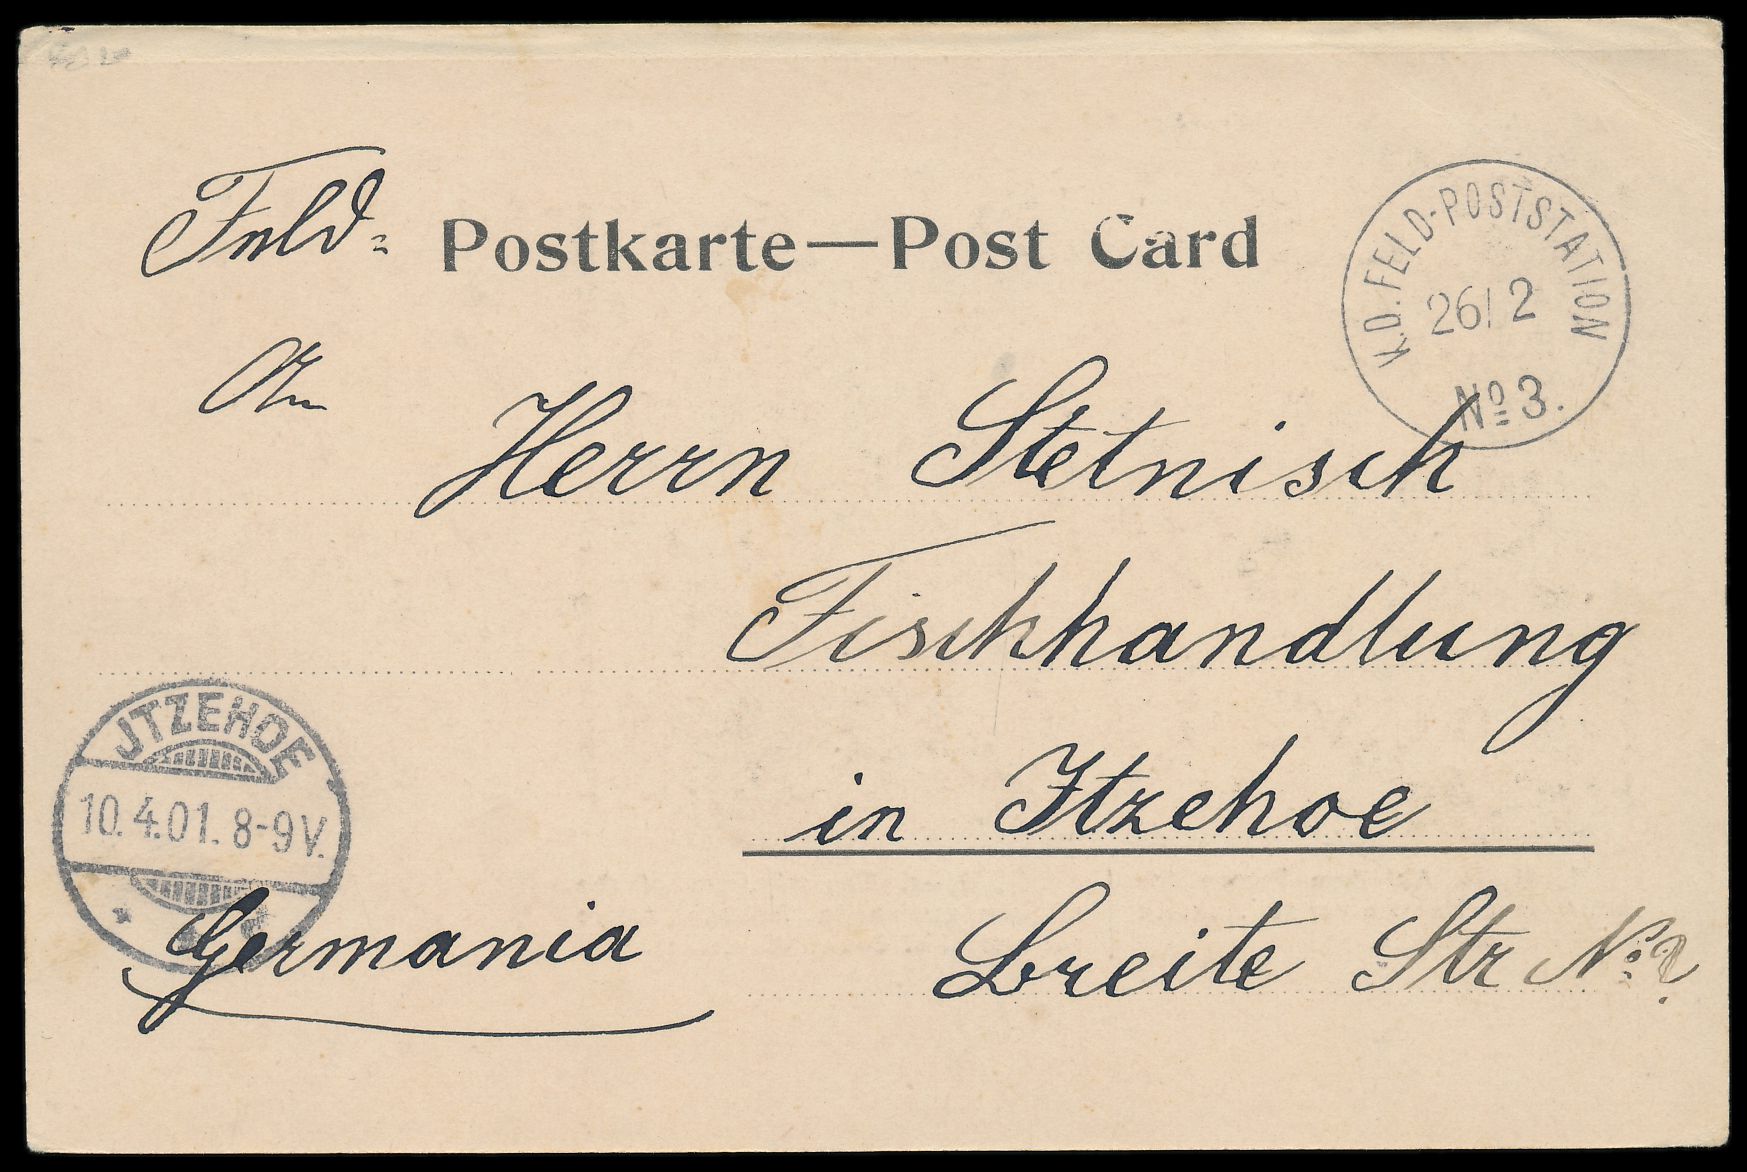 Feld-
Postkarte—Post Card
K.D. FELD-POSTSTATION
26/2
No 3.
An
Herrn Stetnisch
Fischhandlung
in Itzehoe
JTZEHOE
10.4.01. 8-9V.
Germania
Breite Str No